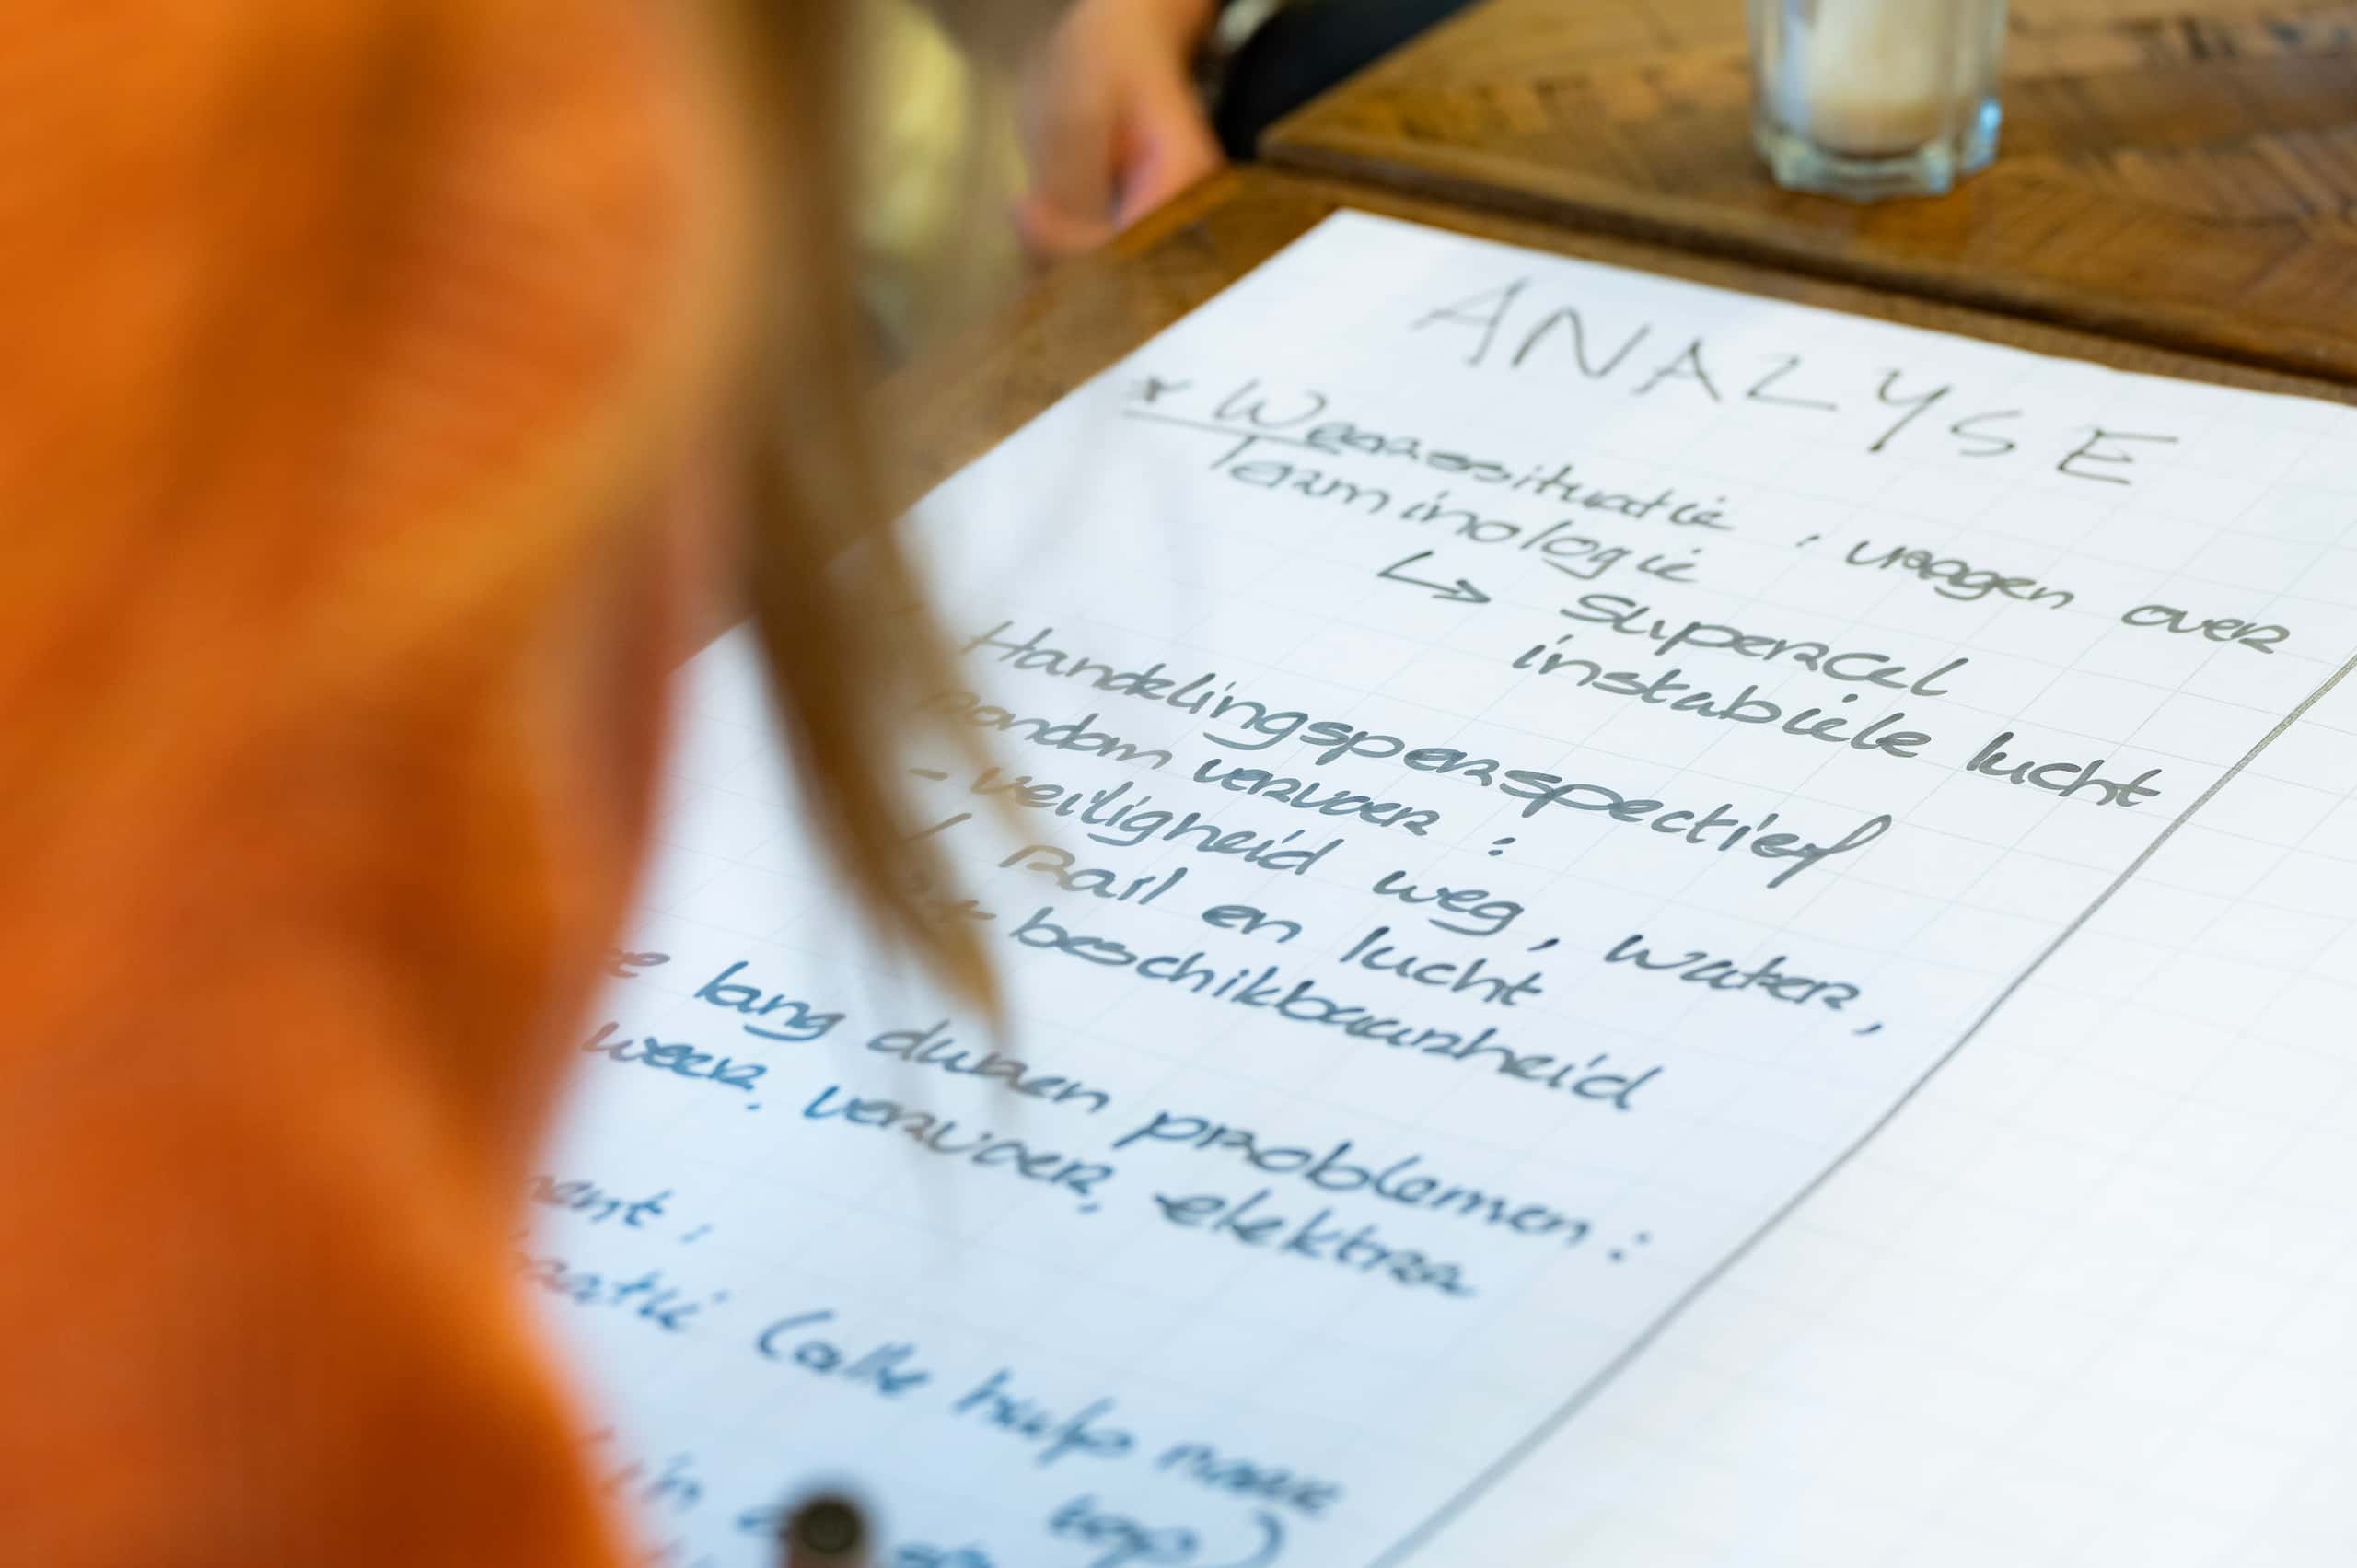 ANALYSE
* Weerssituatie, vragen over
Terminologie
↳ Supercel
instabiele lucht
Handelingsperspectief
rondom vervoer:
- veiligheid weg, water,
Rail en lucht
beschikbaarheid
lang duren problemen:
weer, vervoer, elektra
(alle hulp naar